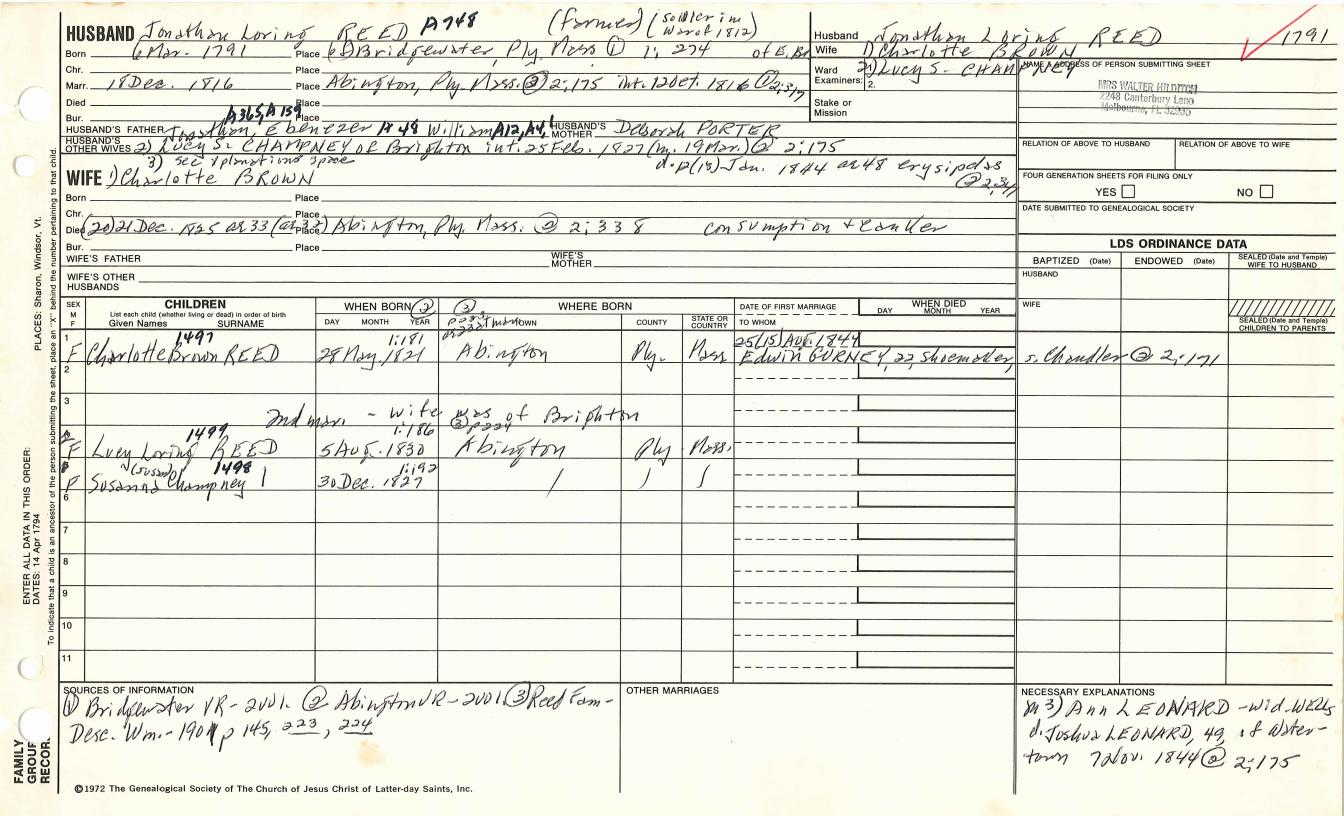 HUSBAND Jonathan Loring REED A748 (farmer) (soldier in War of 1812)
Born 6 Mar. 1791 Place (E) Bridgewater, Ply. Mass ① 1; 274 of E. Br
Chr. Place
Marr. 18 Dec. 1816 Place Abington, Ply. Mass. ② 2; 175 int. 12 Oct. 1816 ① 2; 317
Died Place
Bur. Place
A365, A159
HUSBAND'S FATHER Jonathan, Ebenezer A48 William A12, A4, 1 HUSBAND'S MOTHER Deborah PORTER
HUSBAND'S OTHER WIVES 2) Lucy S. CHAMPNEY of Brighton int. 25 Feb. 1827 (m. 19 Mar.) ② 2; 175
3) see xplanations space d. p(15) Jan. 1844 ae 48 erysipelas
② 2; 341
WIFE 1) Charlotte BROWN
Born Place
Chr. Place
Died (20) 21 Dec. 1825 ae 33 (ae 32) Place Abington, Ply. Mass. ② 2; 338 consumption + canker
Bur. Place
WIFE'S FATHER WIFE'S MOTHER
WIFE'S OTHER HUSBANDS
Husband Jonathan Loring REED 1791
Wife 1) Charlotte BROWN
2) Lucy S. CHAMPNEY
Ward Examiners: 1.
2.
Stake or Mission
NAME & ADDRESS OF PERSON SUBMITTING SHEET
MRS WALTER HILDITCH
2248 Canterbury Lane
Melbourne, FL 32935
RELATION OF ABOVE TO HUSBAND RELATION OF ABOVE TO WIFE
FOUR GENERATION SHEETS FOR FILING ONLY
YES NO
DATE SUBMITTED TO GENEALOGICAL SOCIETY
LDS ORDINANCE DATA
BAPTIZED (Date) ENDOWED (Date) SEALED (Date and Temple) WIFE TO HUSBAND
HUSBAND
WIFE
SEALED (Date and Temple) CHILDREN TO PARENTS
SEX M F CHILDREN WHEN BORN ② WHERE BORN DATE OF FIRST MARRIAGE WHEN DIED
List each child (whether living or dead) in order of birth
Given Names SURNAME DAY MONTH YEAR TOWN COUNTY STATE OR COUNTRY TO WHOM DAY MONTH YEAR
1 1497 1; 181 25 (15) Aug. 1844
F Charlotte Brown REED 28 May. 1821 Abington Ply. Mass Edwin GURNEY, 22, shoemaker, s. Chandler ② 2; 171
2
3
2nd mar. - wife was of Brighton
1499 1; 186 ③ p 224
F Lucy Loring REED 5 Aug. 1830 Abington Ply Mass.
(Susan) 1498 1; 192
F Susanna Champney 30 Dec. 1827
6
7
8
9
10
11
SOURCES OF INFORMATION
① Bridgewater VR-2001. ② Abington VR-2001. ③ Reed Fam-
Desc. Wm.-1901 p 145, 223, 224
OTHER MARRIAGES
NECESSARY EXPLANATIONS
m 3) Ann LEONARD - wid. WELLS
d. Joshua LEONARD, 49, of Water-
town 7 Nov. 1844 ② 2; 175
©1972 The Genealogical Society of The Church of Jesus Christ of Latter-day Saints, Inc.
FAMILY
GROUP
RECOR.
ENTER ALL DATA IN THIS ORDER:
DATES: 14 Apr 1794
PLACES: Sharon, Windsor, Vt.
To indicate that a child is an ancestor of the person submitting the sheet, place an "X" behind the number pertaining to that child.